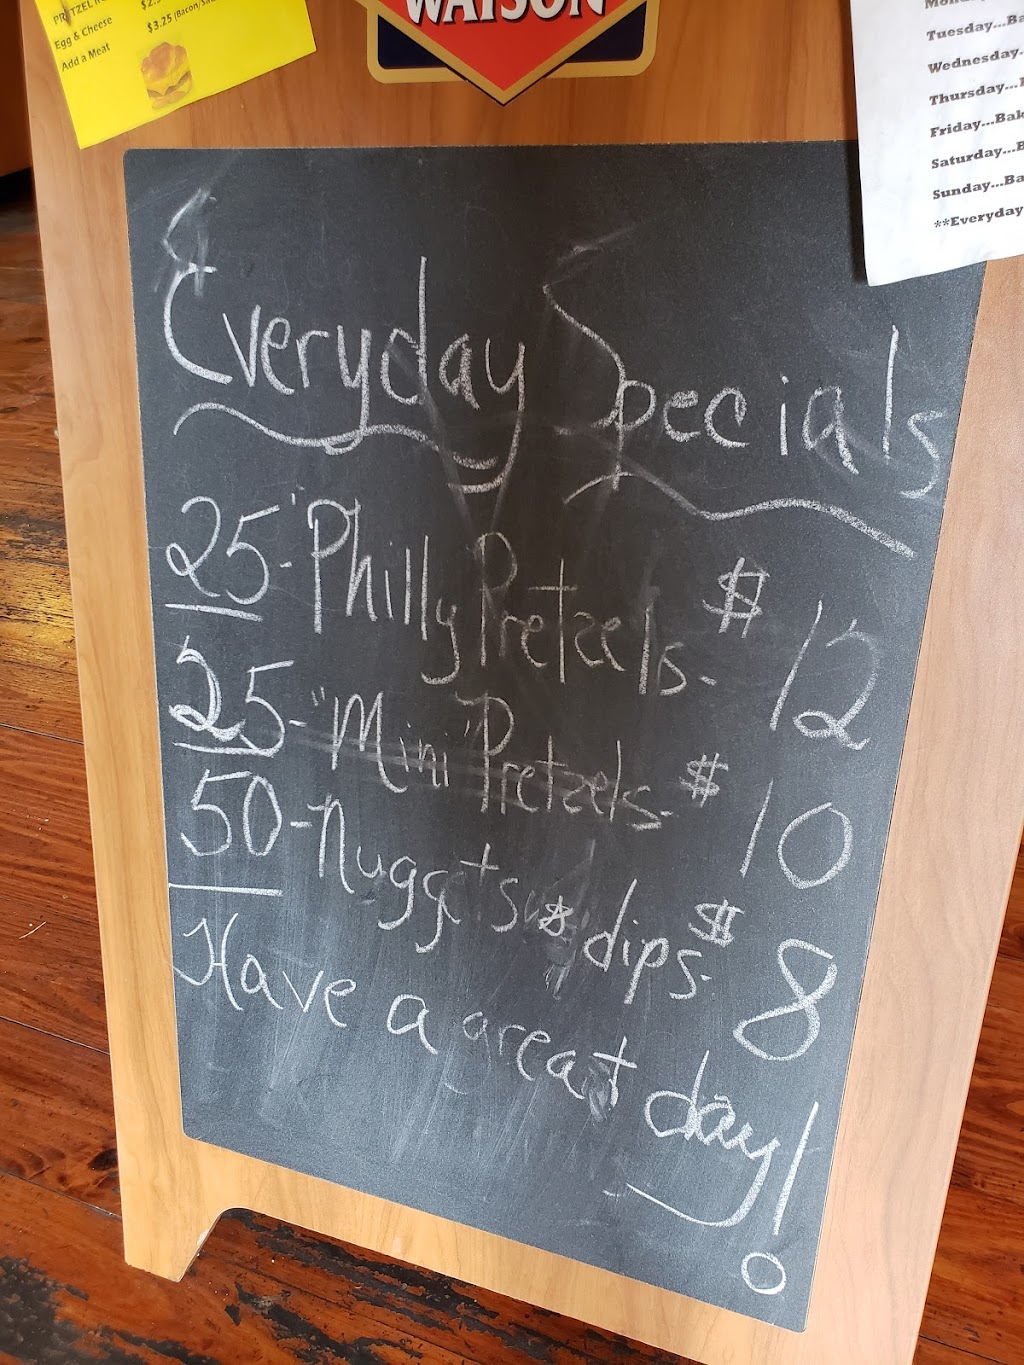 PRETZEL
Egg & Cheese
Add a Meat $3.25 (Bacon/
WATSON
Tuesday...Ba
Wednesday.
Thursday...
Friday...Bak
Saturday...B
Sunday...Ba
**Everyday
Everyday Specials
25-"Philly Pretzels- $12
25-"Mini" Pretzels- $10
50-Nuggets & dips- $8
Have a great day!